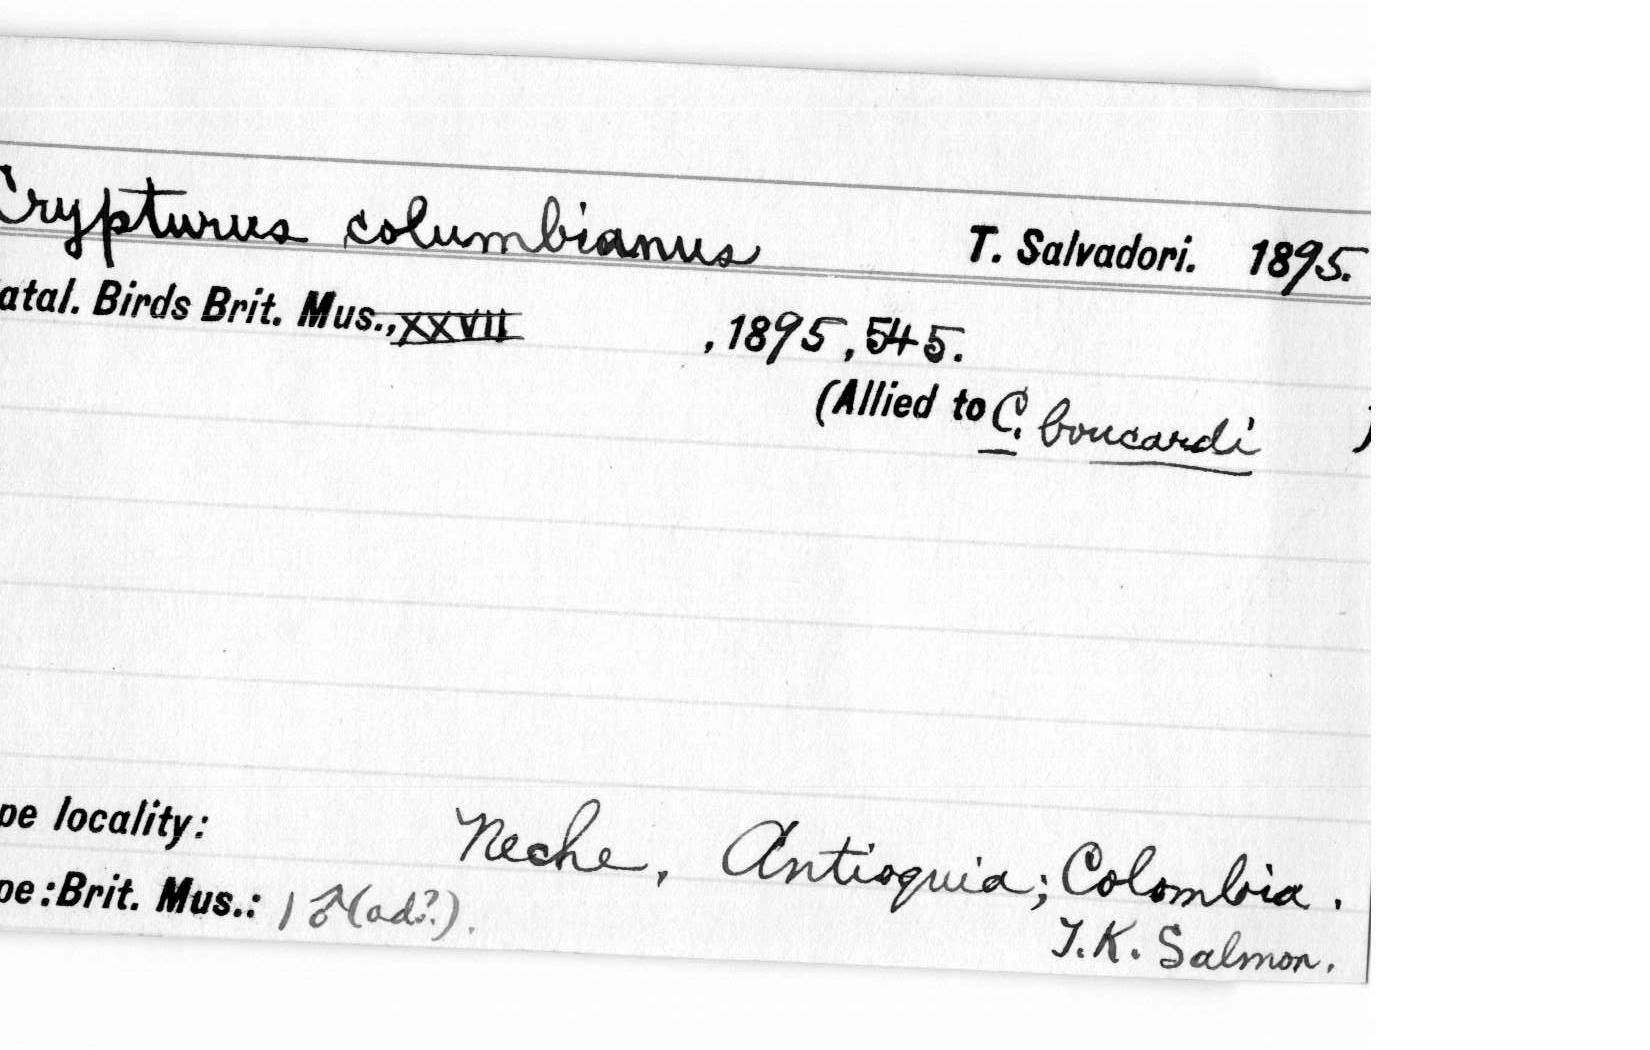 Crypturus columbianus T. Salvadori. 1895.
atal. Birds Brit. Mus., XXVII , 1895, 545.
(Allied to C. boucardi )
pe locality: Neche, Antioquia; Colombia.
pe: Brit. Mus.: 1 ♂ (ad?).
T.K. Salmon.